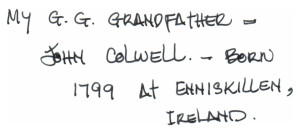 MY G.G. GRANDFATHER –
JOHN COLWELL. – BORN
1799 AT ENNISKILLEN,
IRELAND.